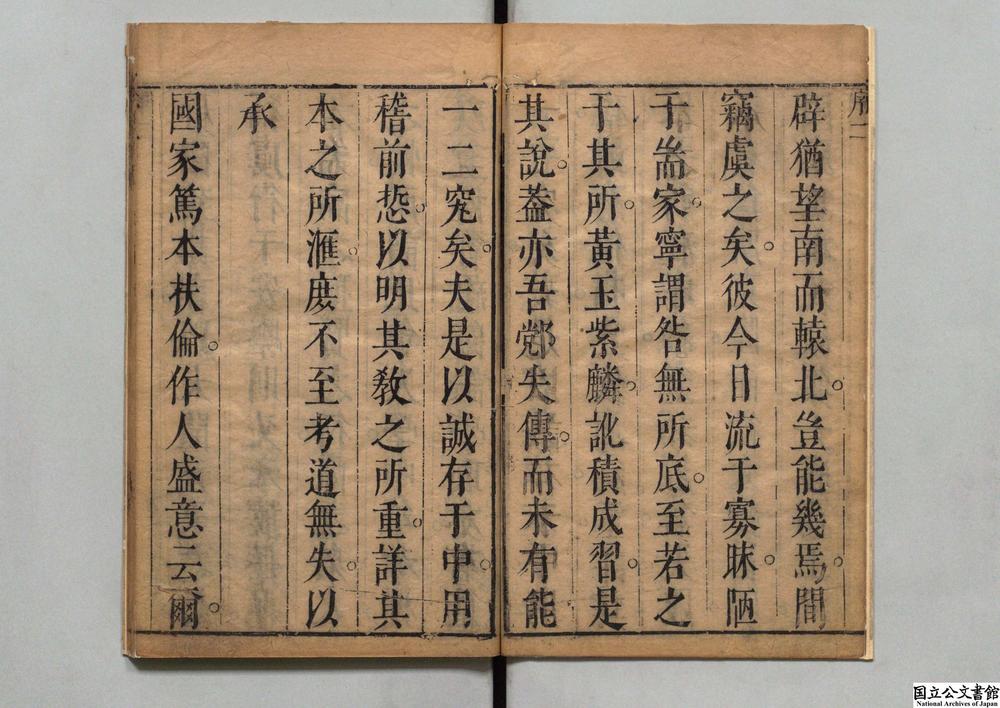 序二
辟猶望南而轅北豈能幾焉間
竊虞之矣彼今日流于寡昧陋
于耑家寧謂咎無所底至若之
于其所黃玉紫麟訛積成習是
其說葢亦吾郷失傳而未有能
一二究矣夫是以誠存于中用
稽前愆以明其敎之所重詳其
本之所滙庻不至考道無失以
承
國家篤本扶倫作人盛意云爾
国立公文書館
National Archives of Japan